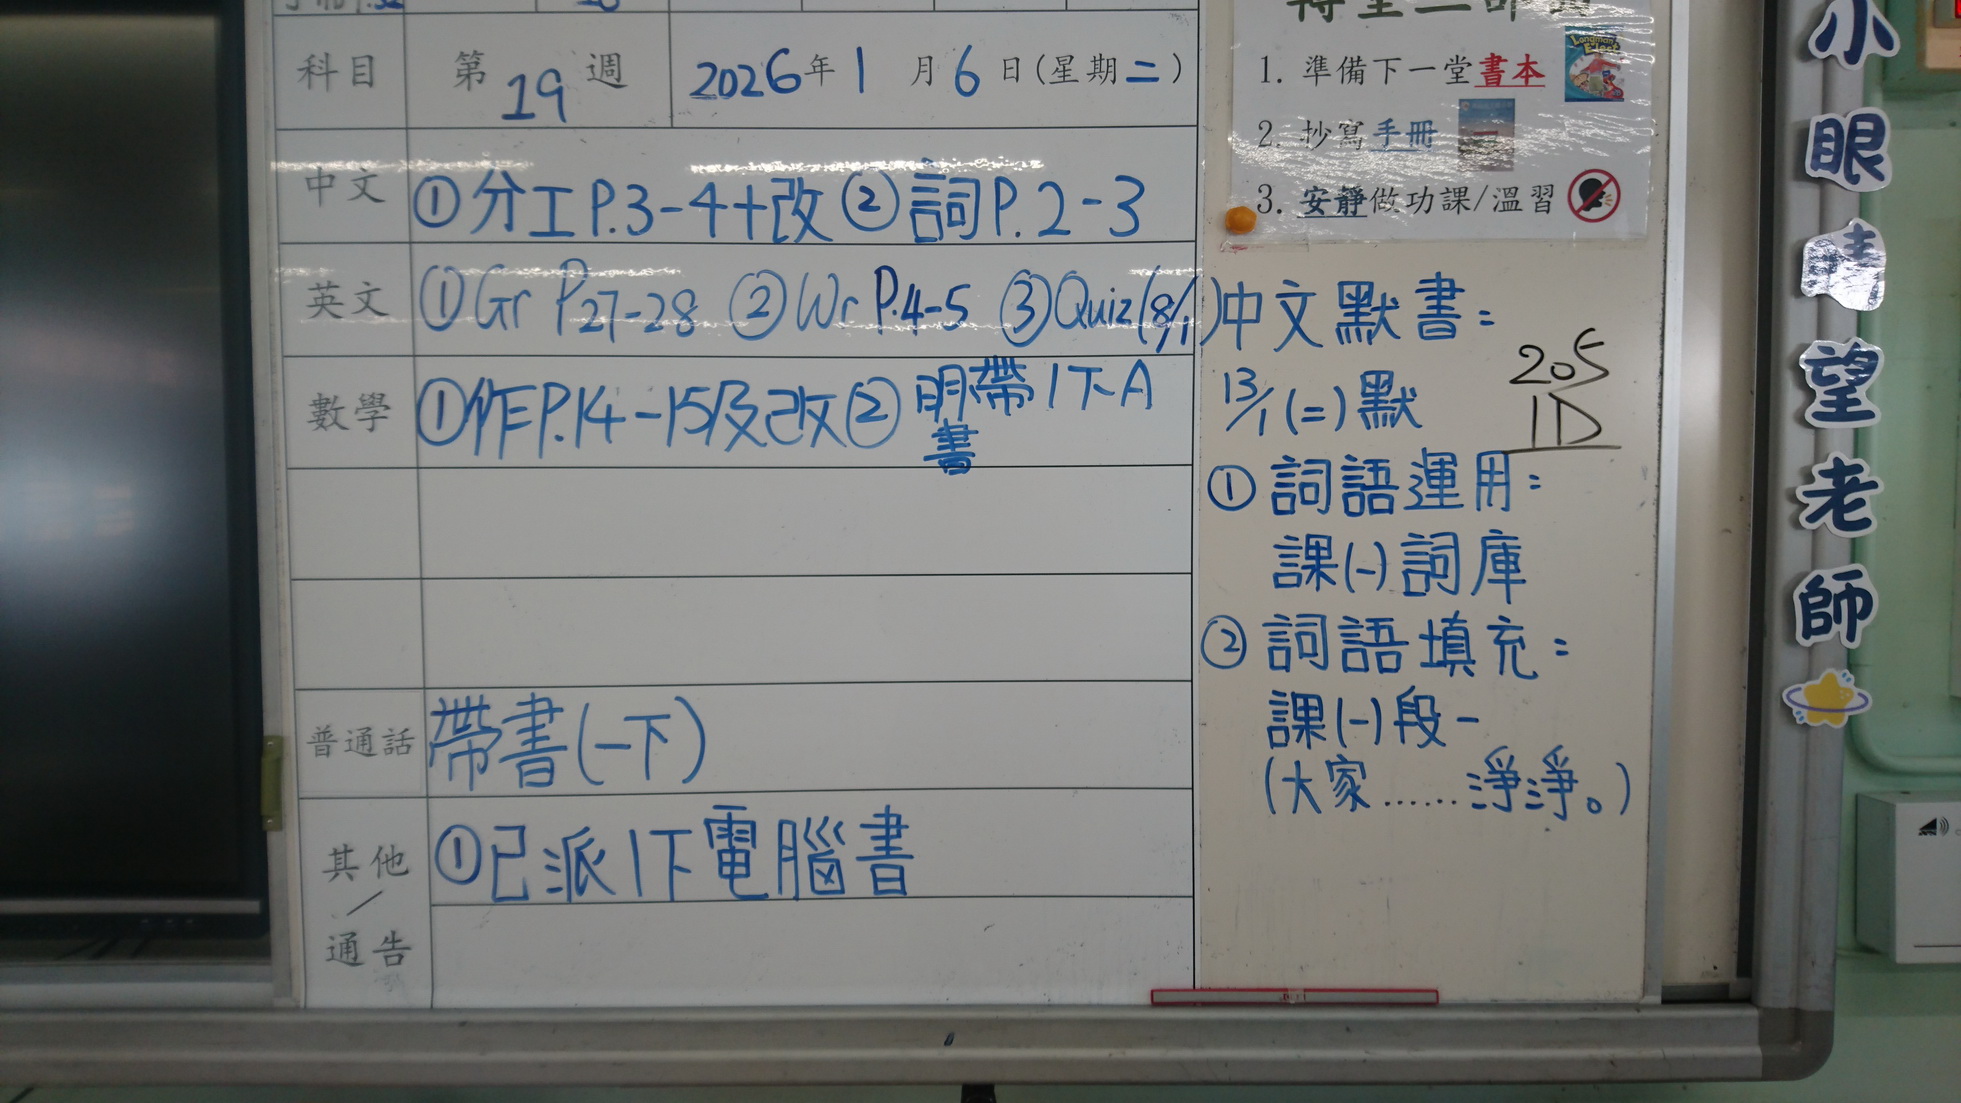 科目 第19週 2026年1月6日(星期二)
中文 ①分工P.3-4+改 ②詞P.2-3
英文 ①Gr P27-28 ②Wr P.4-5 ③Quiz(8/1)
數學 ①作P.14-15及改 ②明帶1下A書
普通話 帶書(一下)
其他/通告 ①已派1下電腦書
1. 準備下一堂書本
2. 抄寫手冊
3. 安靜做功課/溫習
中文默書:
13/1(二)默
205
1D
①詞語運用:
課(一)詞庫
②詞語填充:
課(一)段一
(大家......淨淨。)
小眼睛望老師